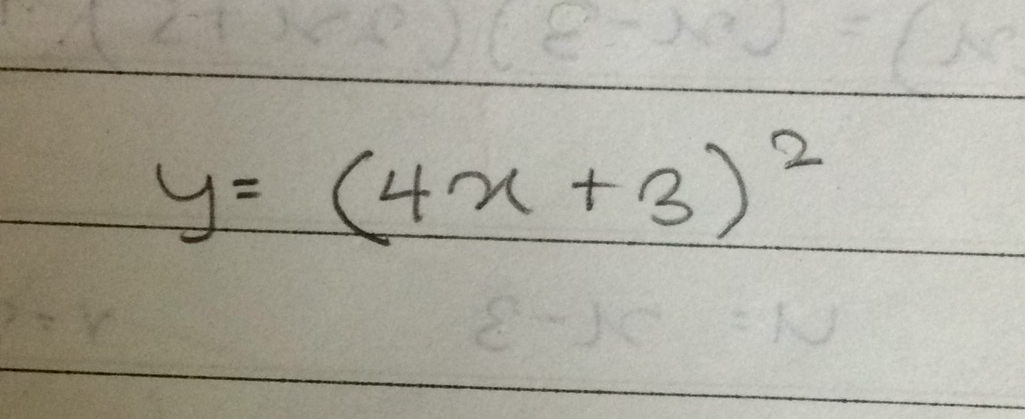 y = (4x + 3)²